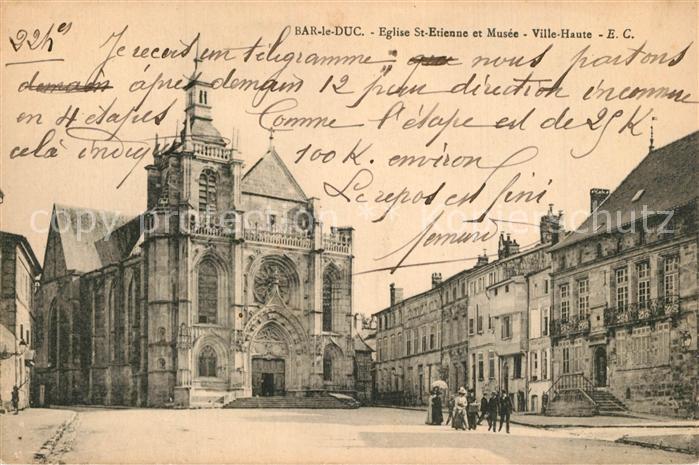 BAR-le-DUC. - Eglise St-Etienne et Musée - Ville-Haute - E. C.
22h es
Je reçois un telegramme: que nous partons
demain après demain 12 juin direction inconnue
en 4 étapes Comme l'étape est de 25 K
cela indique 100 K. environ
Le repos est fini
© wkag-ansichtskartenschutz